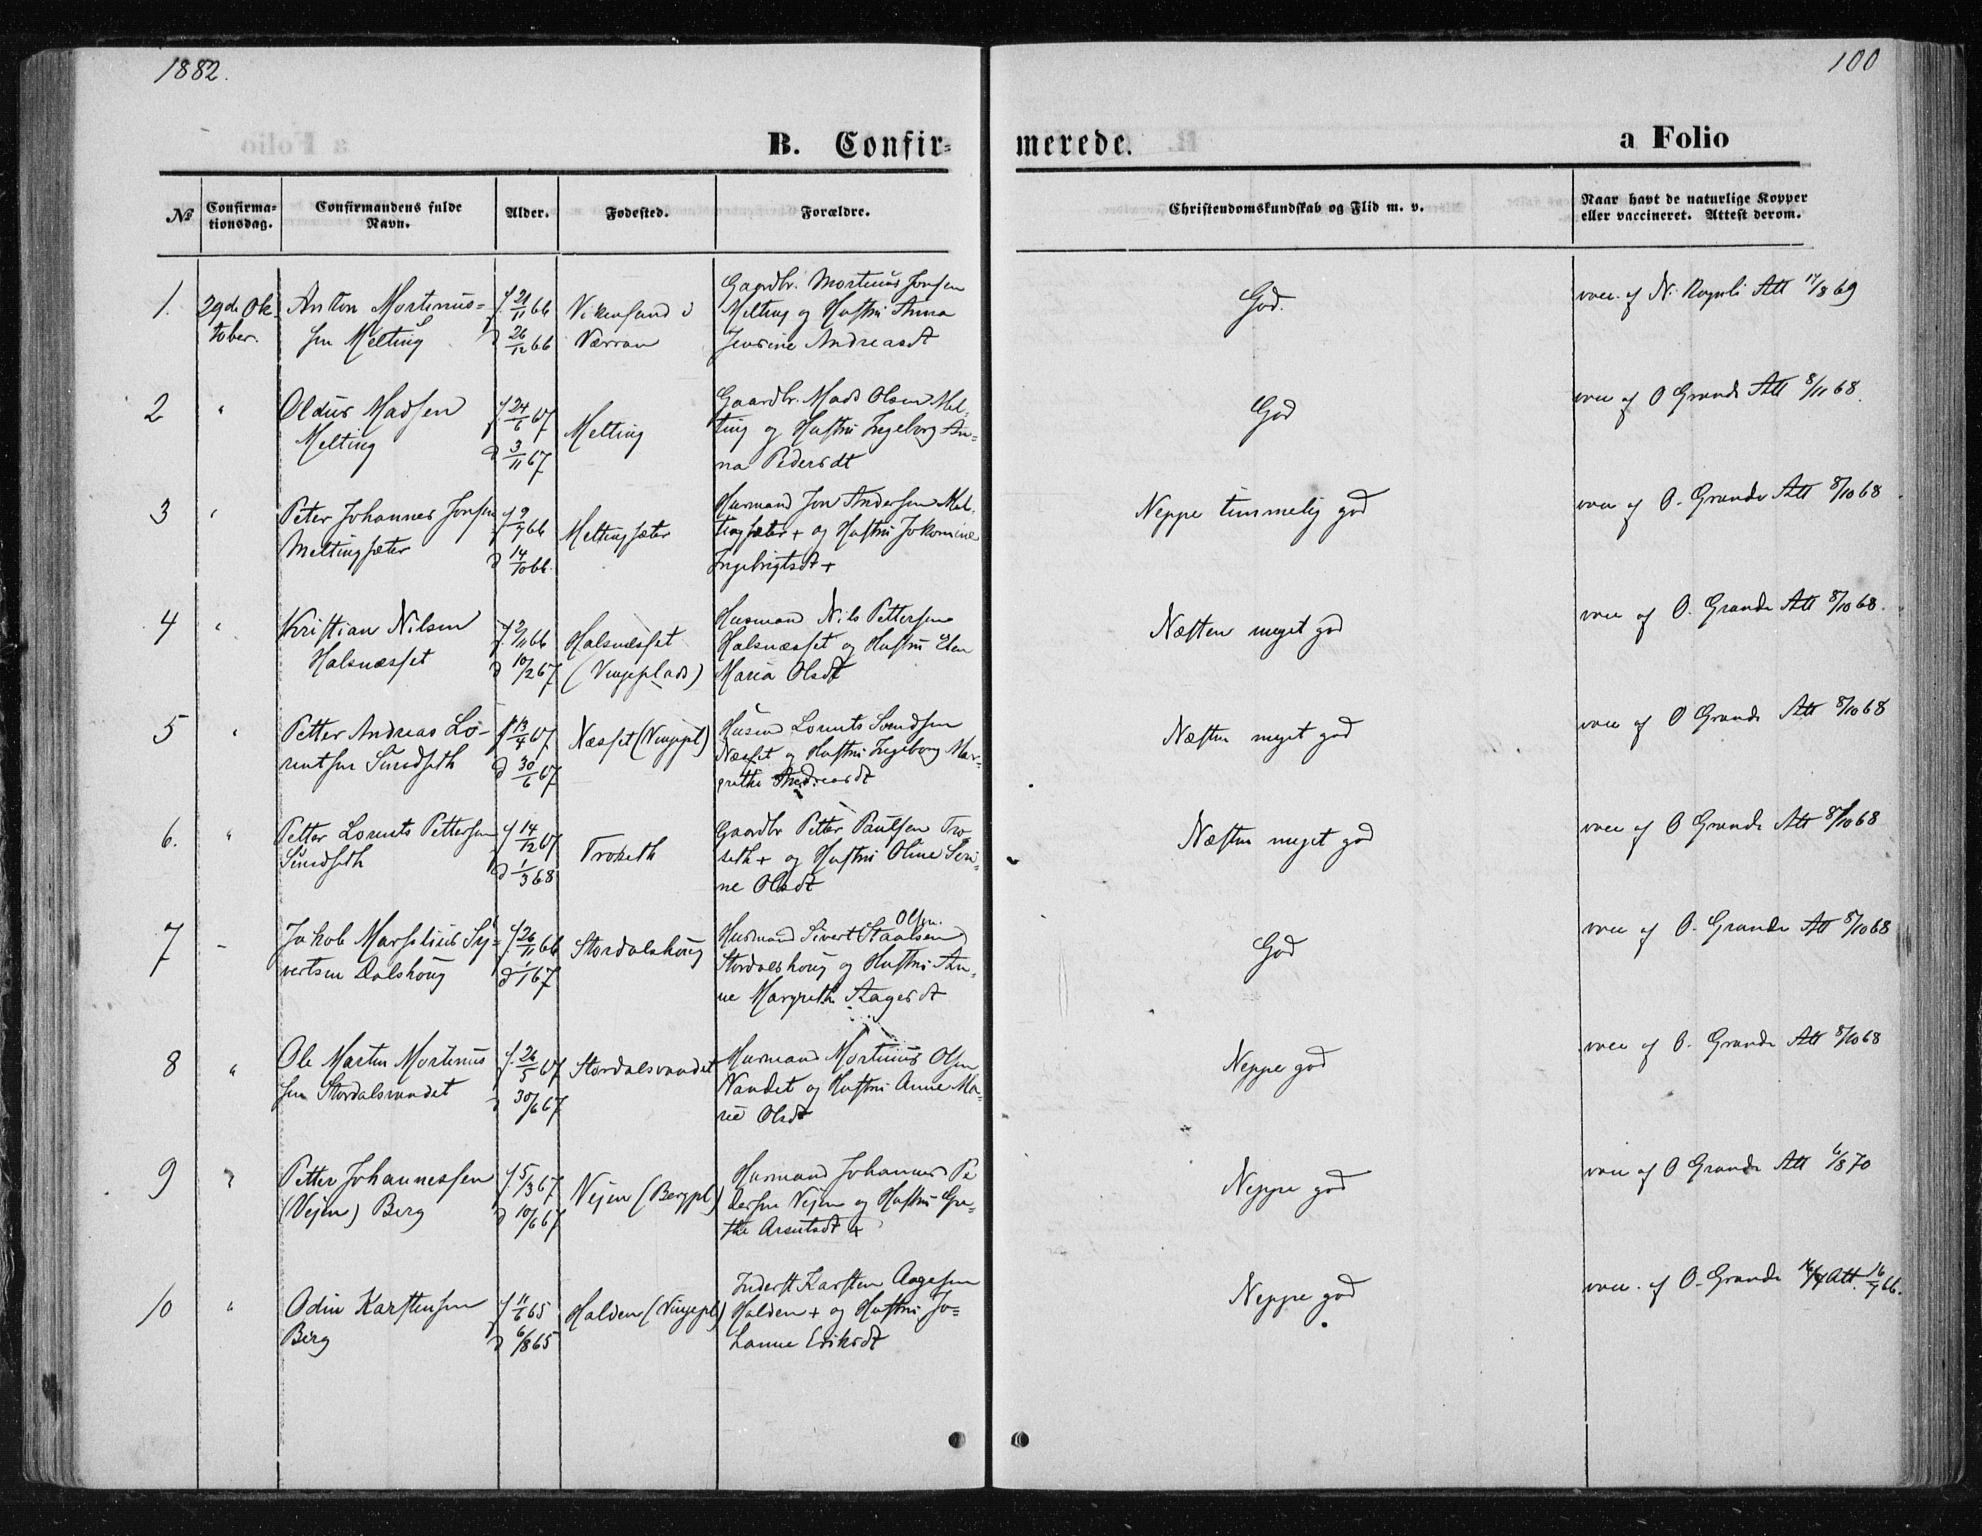 1882.
100
B. Confir-
merede.
a Folio
No
Confirma-
tionsdag.
Confirmandens fulde
Navn.
Alder.
Fødested.
Forældre.
Christendomskundskab og Flid m. v.
Naar havt de naturlige Kopper
eller vaccineret. Attest derom.
1.
29de Ok-
tober.
Anton Mortinus-
sen Melting
f. 21/11 66
d 26/12 66
Vikensund i
Værran
Gaardbr. Mortinus Jonsen
Melting og Hustru Anna
Jensine Andreasdt
God.
vacc. af N. Rognli Att 17/8 69
2
"
Oldus Madsen
Melting
f. 24/6 67
d 3/11 67
Melting
Gaardbr. Mads Olsen Mel-
ting og Hustru Ingeborg An-
na Pedersdt
God
vacc af O Grande Att 8/11 68.
3
"
Peter Johannes Jonsen
Meltingsæter
f 9/7 66
d 14/10 66.
Meltingsæter
Husmand Jon Andersen Mel-
tingsæter + og Hustru Jokomine
Ingebrigtsdt +
Neppe temmelig god
vacc af O. Grande Att 8/10 68
4
"
Kristian Nilsen
Halsnæsset
f. 2/11 66
d 10/2 67
Halsnæsset
(Vingeplads)
Husmand Nils Pettersen
Halsnæsset og Hustru Elen
Maria Olsdt
Næsten meget god
vacc af O. Grande Att 8/10 68.
5
"
Petter Andreas Lo-
rentsen Sundseth
f 13/4 67
d 30/6 67
Næsset (Vingepl)
Husm Lorents Svendsen
Næsset og Hustru Ingeborg Mar-
grethe Andreasdt
Næsten meget god
vacc af O Grande Att 8/10 68
6.
"
Petter Lorents Pettersen
Sundseth
f 14/12 67
d 1/3 68
Troseth
Gaardbr Petter Paulsen Tro-
seth + og Hustru Oline Seri-
ne Olsdt
Næsten meget god
vacc af O Grande Att 8/10 68
7
"
Jakob Marselius Sy-
vertsen Dalshoug
f 26/11 66
d 1/1 67
Stordalshoug
Olsen.
Husmand Sivert Staalsen
Stordalshoug og Hustru An-
ne Margreth Aagesdt
God
vacc af O. Grande Att 8/10 68
8
"
Ole Martin Mortinus
sen Stordalsvandet
f. 26/5 67
d 30/6 67
Stordalsvandet
Husmand Mortinus Olsen
Vandet og Hustru Anne Ma-
rie Olsdt
Neppe god
vacc af O. Grande Att 8/10 68
9
"
Petter Johannessen
(Vejen) Berg
f 5/3 67
d 10/6 67
Vejen (Bergpl)
Husmand Johannes Pe
dersen Vejen og Hustru Gre-
the Arentsdt +
Neppe god
vacc af O Grande Att 6/8 70
10
"
Odin Karstensen
Berg
f 11/6 65
d 6/8 65
Halden (Vingepl)
Inderst Karsten Aagesen
Halden + og Hustru Jo-
hanne Eriksdt
Neppe god
vacc. af O. Grande Att. 16/7 66.